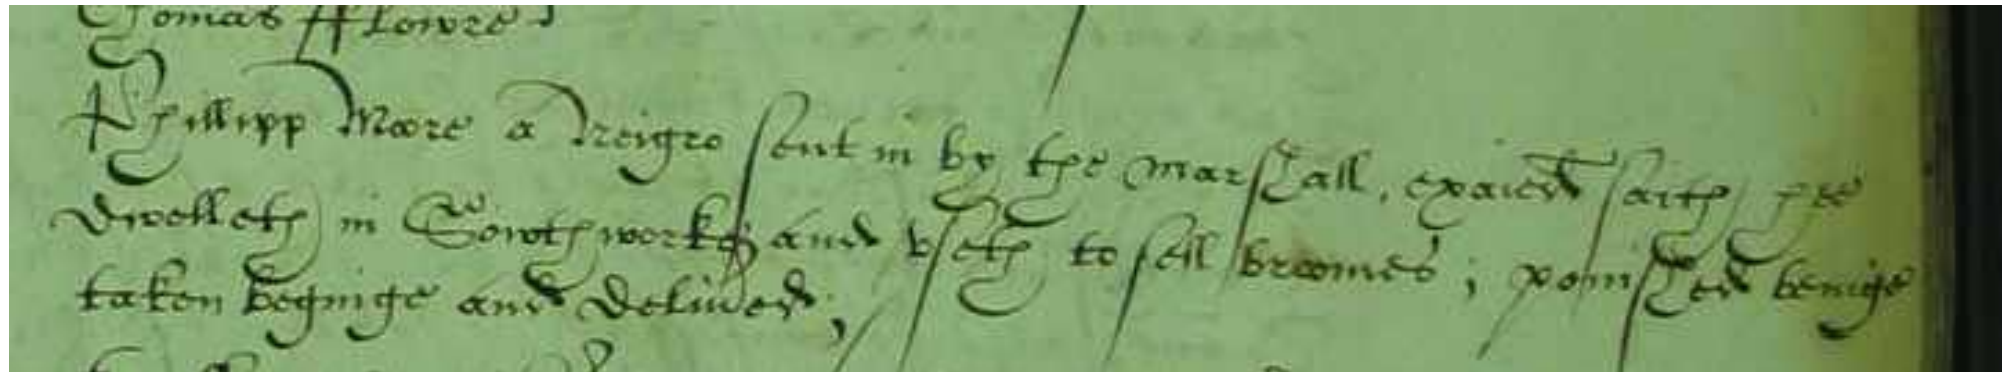 Thomas fflowre
Phillipp Moore a Neigro sent in by the Marshall, exaied saith hee
dwelleth in Sowthworke and vseth to sell broomes; ponished benige
taken begnige and deliued;